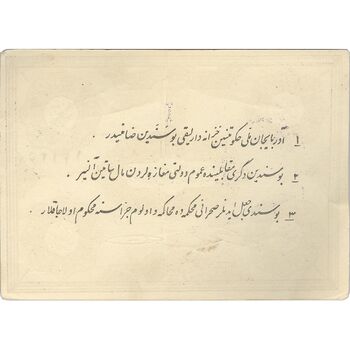 ۱ آذربایجان ملی حکومتینین خزانه دارلیقی بو سندین ضامنیدر .
۲ بو سندین دگری مقابلینده عموم دولتی مغازه لردن مال ساتین آلینیر .
۳ بو سندی جعل ایدنلر صحرائی محکمه ده محاکمه و اولوم جزاسنه محکوم اولاجاقلار .